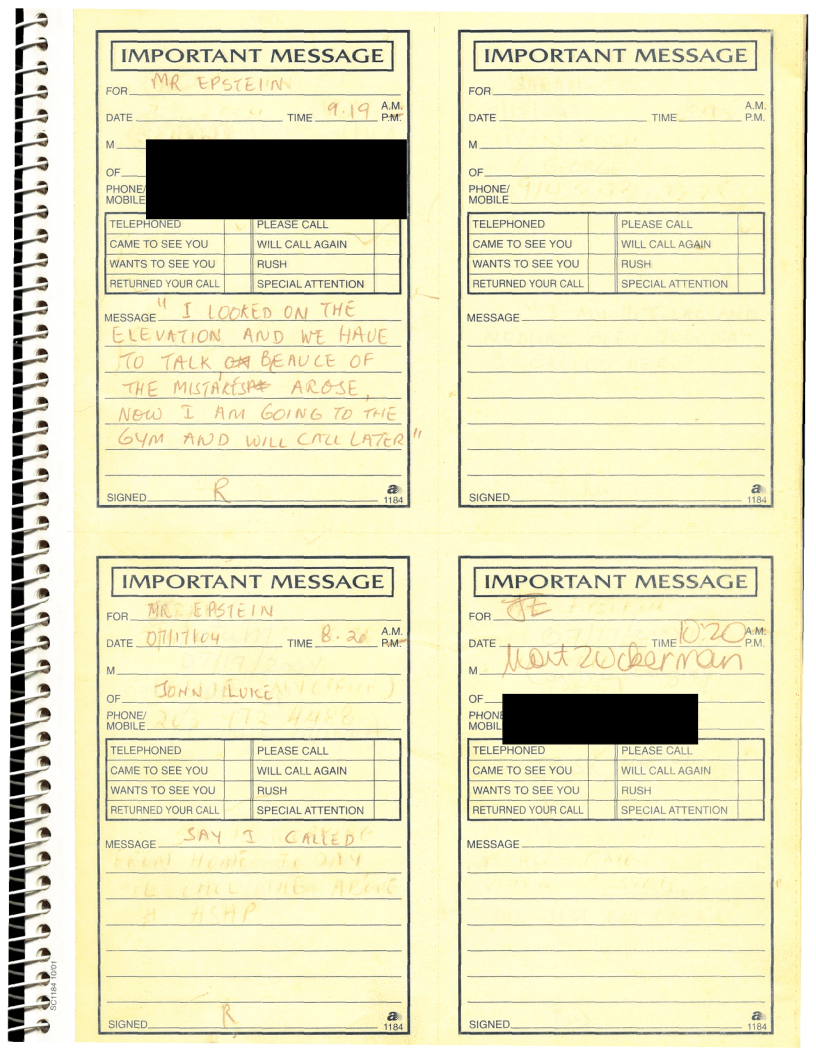 IMPORTANT MESSAGE
FOR MR EPSTEIN
DATE TIME 9.19 A.M. P.M.
M
OF
PHONE/
MOBILE
TELEPHONED PLEASE CALL
CAME TO SEE YOU WILL CALL AGAIN
WANTS TO SEE YOU RUSH
RETURNED YOUR CALL SPECIAL ATTENTION
MESSAGE " I LOOKED ON THE
ELEVATION AND WE HAVE
TO TALK BEAUCE OF
THE MISTAKES AROSE,
NOW I AM GOING TO THE
GYM AND WILL CALL LATER "
SIGNED R
a
1184
IMPORTANT MESSAGE
FOR
DATE TIME A.M. P.M.
M
OF
PHONE/
MOBILE
TELEPHONED PLEASE CALL
CAME TO SEE YOU WILL CALL AGAIN
WANTS TO SEE YOU RUSH
RETURNED YOUR CALL SPECIAL ATTENTION
MESSAGE
SIGNED
a
1184
IMPORTANT MESSAGE
FOR MR. EPSTEIN
DATE 07/17/04 TIME 8.20 A.M. P.M.
M
OF JOHN LUKE
PHONE/
MOBILE
TELEPHONED PLEASE CALL
CAME TO SEE YOU WILL CALL AGAIN
WANTS TO SEE YOU RUSH
RETURNED YOUR CALL SPECIAL ATTENTION
MESSAGE SAY I CALLED
SIGNED R
a
1184
IMPORTANT MESSAGE
FOR JE
DATE TIME 10:20 A.M. P.M.
M Mort Zuckerman
OF
PHONE
MOBIL
TELEPHONED PLEASE CALL
CAME TO SEE YOU WILL CALL AGAIN
WANTS TO SEE YOU RUSH
RETURNED YOUR CALL SPECIAL ATTENTION
MESSAGE
SIGNED
a
1184
SC1184 10/01